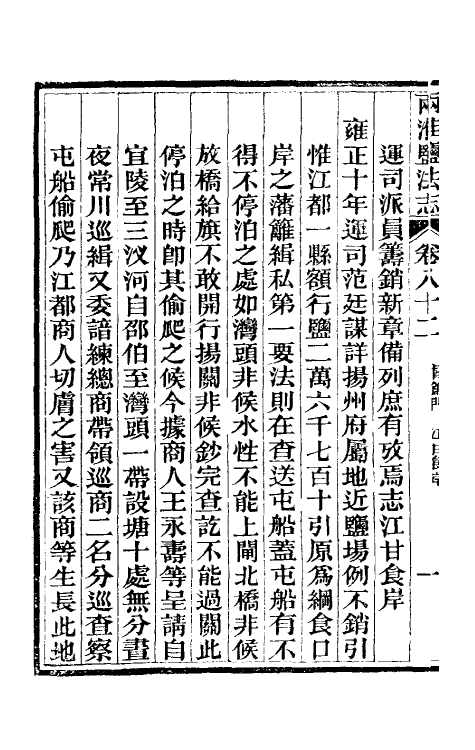 兩淮鹽法志 卷八十二 一
運司派員籌銷新章備列庶有攷焉志江甘食岸
雍正十年運司范廷謀詳揚州府屬地近鹽場例不銷引
惟江都一縣額行鹽二萬六千七百十引原爲綱食口
岸之藩籬緝私第一要法則在查送屯船蓋屯船有不
得不停泊之處如灣頭非候水性不能上閘北橋非候
放橋給旗不敢開行揚關非候鈔完查訖不能過關此
停泊之時卽其偷爬之候今據商人王永壽等呈請自
宜陵至三汊河自邵伯至灣頭一帶設塘十處無分晝
夜常川巡緝又委諳練總商帶領巡商二名分巡查察
屯船偷爬乃江都商人切膚之害又該商等生長此地